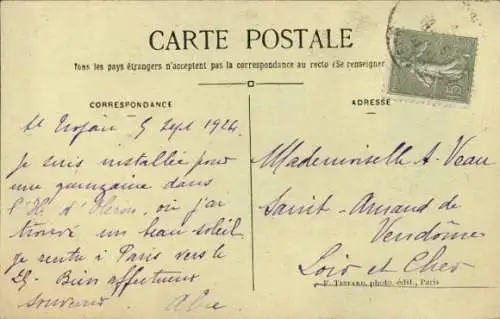 CARTE POSTALE
Tous les pays étrangers n'acceptent pas la correspondance au recto (Se renseigner
CORRESPONDANCE
ADRESSE
St Trojan 5 Sept 1924
Je suis installée pour
une quinzaine dans
l'Ile d'Oléron, où j'ai
trouvé un beau soleil
je rentre à Paris vers le
25. Bien affectueux
souvenir.
Mademoiselle A. Veau
Saint-Amand de
Vendôme
Loir et Cher
F. TESTARD, photo. édit., Paris